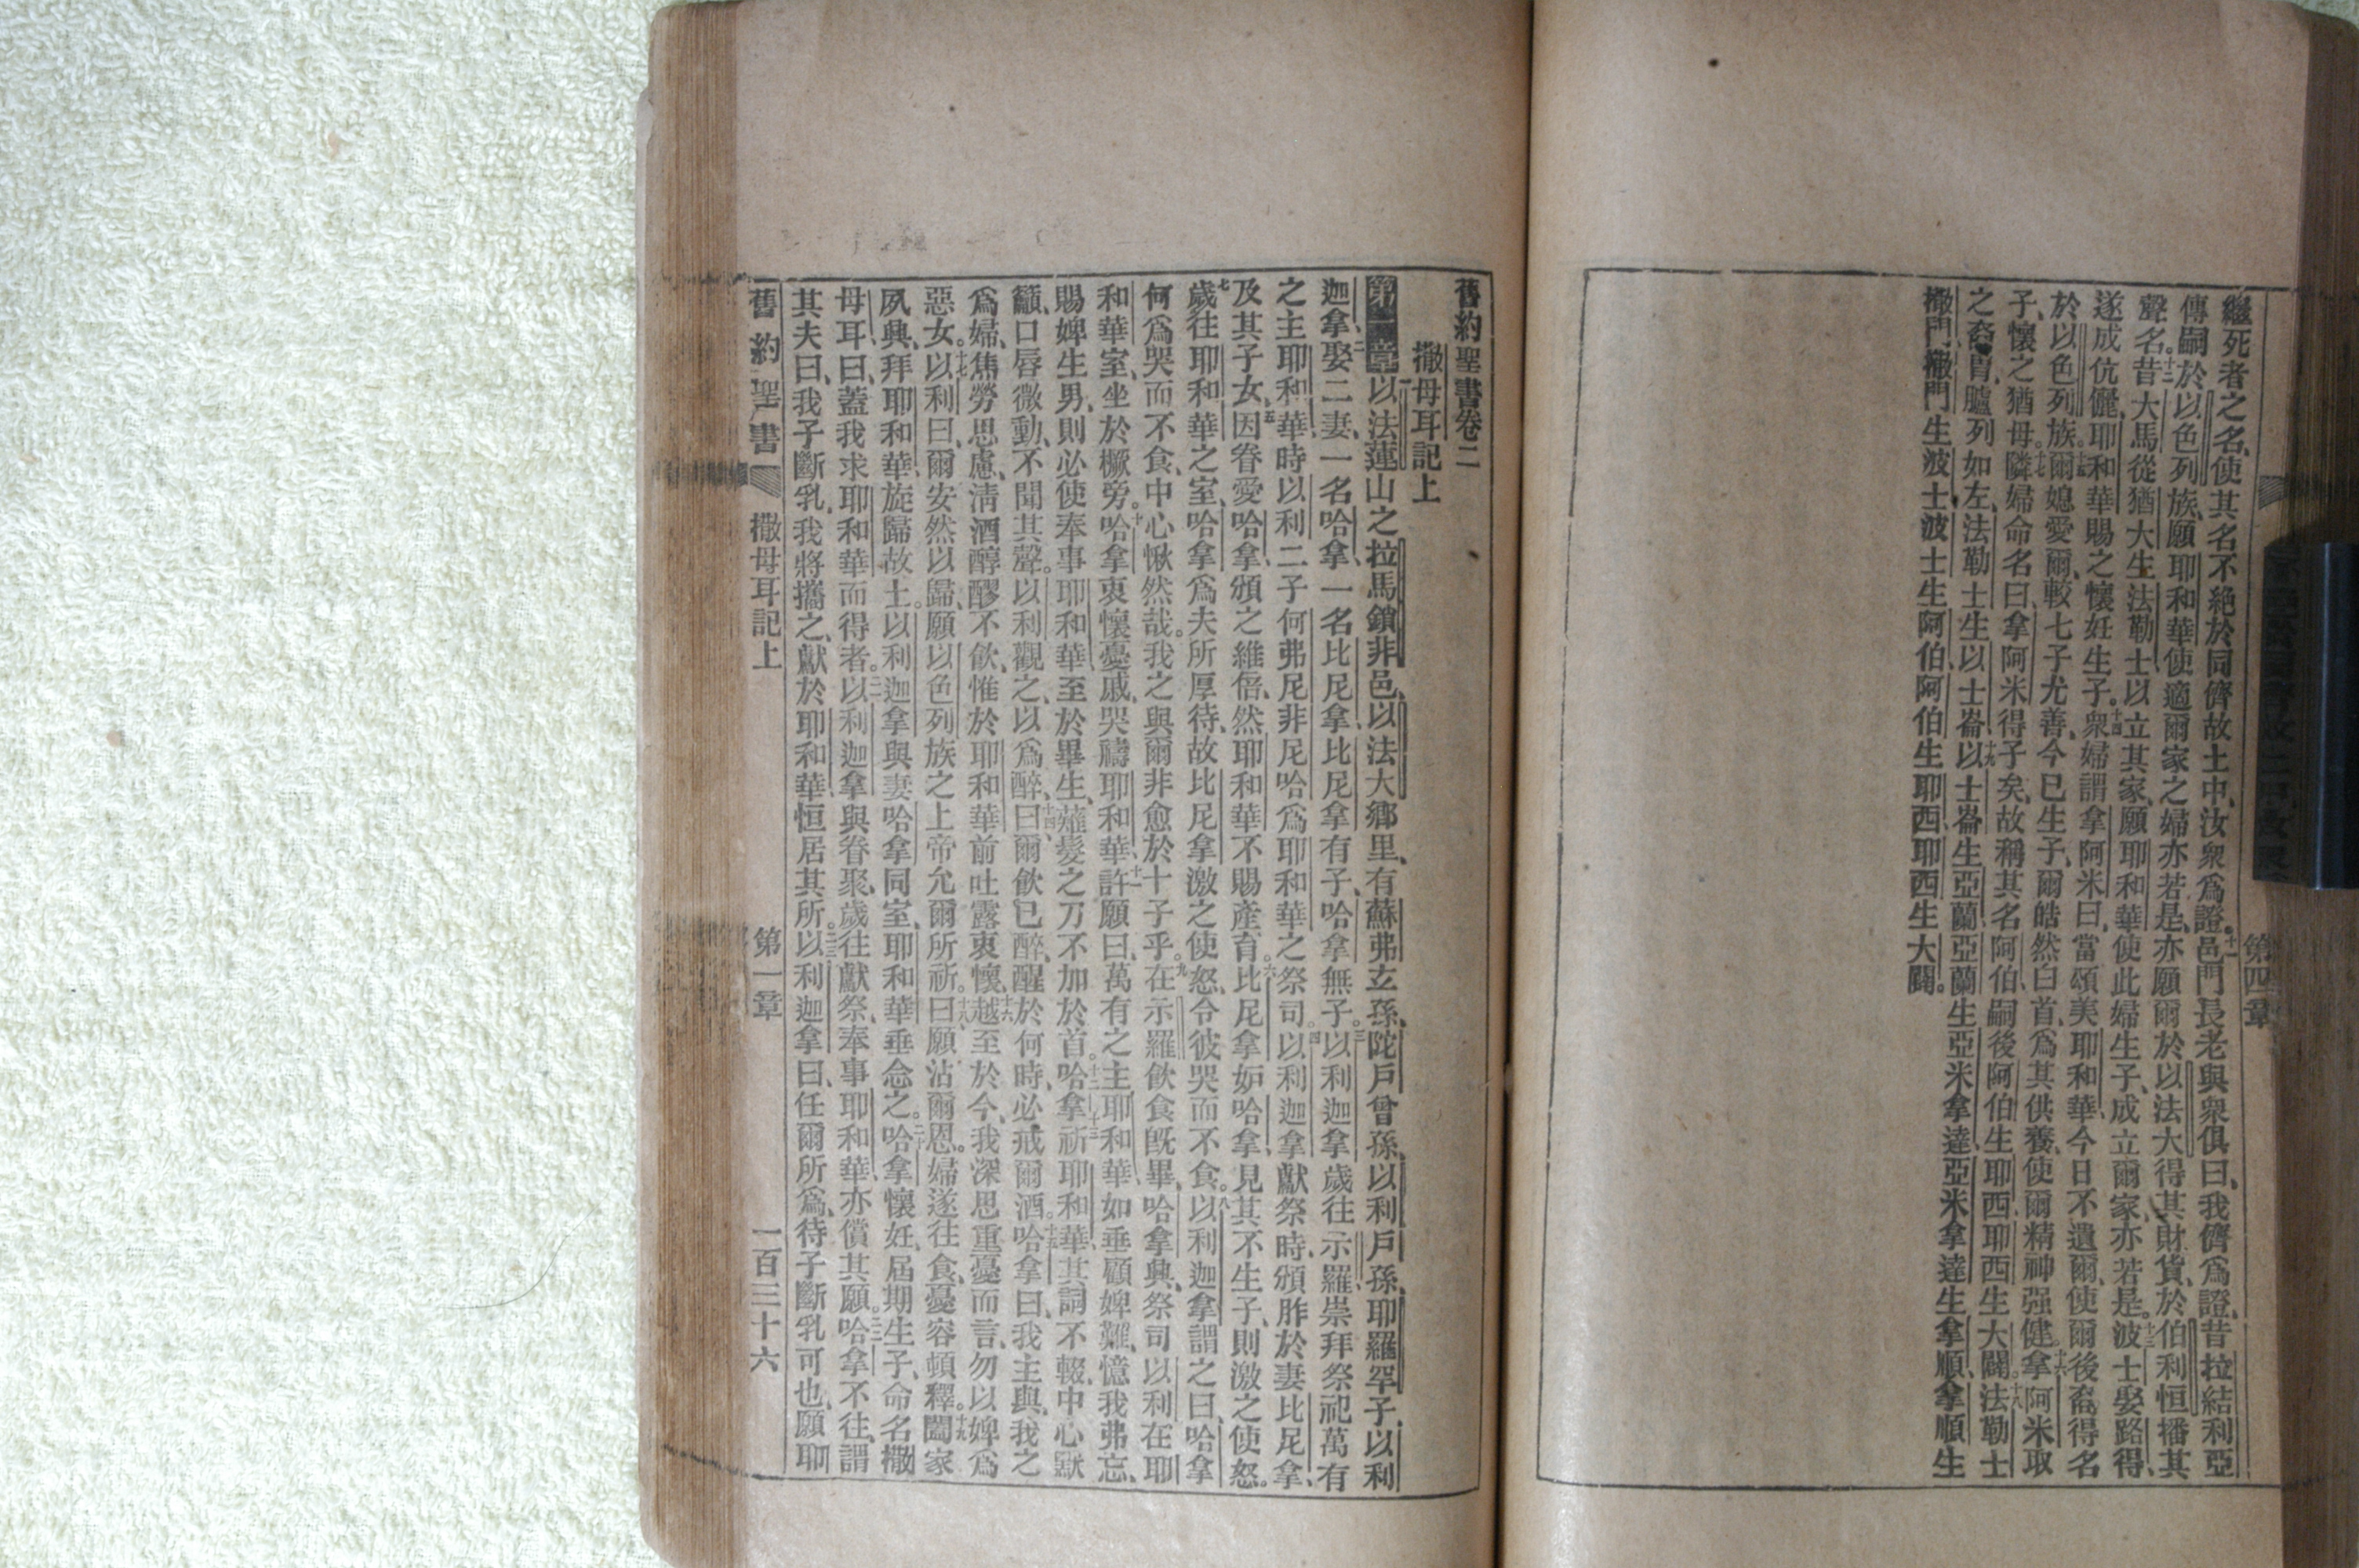 第四章
繼死者之名、使其名不絕於同儕故土中、汝衆爲證。十一邑門長老與衆俱曰、我儕爲證、昔拉結利亞
傳嗣於以色列族、願耶和華使適爾家之婦亦若是、亦願爾於以法大得其財貨、於伯利恒播其
聲名。十二昔大馬從猶大生法勒士、以立其家、願耶和華使此婦生子、成立爾家、亦若是。十三波士娶路得、
遂成伉儷、耶和華賜之懷妊生子。十四衆婦謂拿阿米曰、當頌美耶和華、今日不遺爾、使爾後裔得名
於以色列族。十五爾媳愛爾、較七子尤善、今已生子、爾皓然白首、爲其供養、使爾精神强健。十六拿阿米取
子、懷之猶母。十七隣婦命名曰、拿阿米得子矣、故稱其名阿伯、嗣後阿伯生耶西、耶西生大闢。十八法勒士
之裔胄、臚列如左、法勒士生以士崙、十九以士崙生亞蘭、亞蘭生亞米拿達、亞米拿達生拿順、拿順生
撒門、撒門生波士、波士生阿伯、阿伯生耶西、耶西生大闢。
舊約聖書卷二
撒母耳記上
第一章 一以法蓮山之拉馬鎖非邑、以法大鄉里、有蘇弗玄孫、陀戶曾孫、以利戶孫、耶羅罕子、以利
迦拿、二娶二妻、一名哈拿、一名比尼拿、比尼拿有子、哈拿無子。三以利迦拿歲往示羅、崇拜祭祀萬有
之主耶和華、時以利二子何弗尼非尼哈爲耶和華之祭司。四以利迦拿獻祭時、頒胙於妻比尼拿、
及其子女、五因眷愛哈拿、頒之維倍、然耶和華不賜產育。六比尼拿妒哈拿、見其不生子、則激之使怒。
七歲往耶和華之室、哈拿爲夫所厚待、故比尼拿激之使怒、令彼哭而不食。八以利迦拿謂之曰、哈拿
何爲哭而不食、中心愀然哉。我之與爾、非愈於十子乎。九在示羅飲食旣畢、哈拿興、祭司以利在耶
和華室、坐於橛旁。十哈拿衷懷憂戚、哭禱耶和華、十一許願曰、萬有之主耶和華、如垂顧婢難、憶我弗忘、
賜婢生男、則必使奉事耶和華、至於畢生、薙髮之刀不加於首。十二哈拿祈耶和華、其詞不輟、十三中心默
籲、口唇微動、不聞其聲。以利觀之、以爲醉、十四曰、爾飲已醉、醒於何時、必戒爾酒。十五哈拿曰、我主與、我之
爲婦、焦勞思慮、淸酒醇醪不飲、惟於耶和華前吐露衷懷、十六越至於今、我深思重憂而言、勿以婢爲
惡女。十七以利曰、爾安然以歸、願以色列族之上帝允爾所祈。十八曰、願沾爾恩。婦遂往食、憂容頓釋。十九闔家
夙興、拜耶和華、旋歸故土。以利迦拿與妻哈拿同室、耶和華垂念之。二十哈拿懷妊、屆期生子、命名撒
母耳、曰、蓋我求耶和華而得者。二一以利迦拿與眷聚、歲往獻祭、奉事耶和華、亦償其願。二二哈拿不往、謂
其夫曰、我子斷乳、我將攜之、獻於耶和華、恒居其所。二三以利迦拿曰、任爾所爲、待子斷乳可也、願耶
舊約聖書 撒母耳記上 第一章 一百三十六